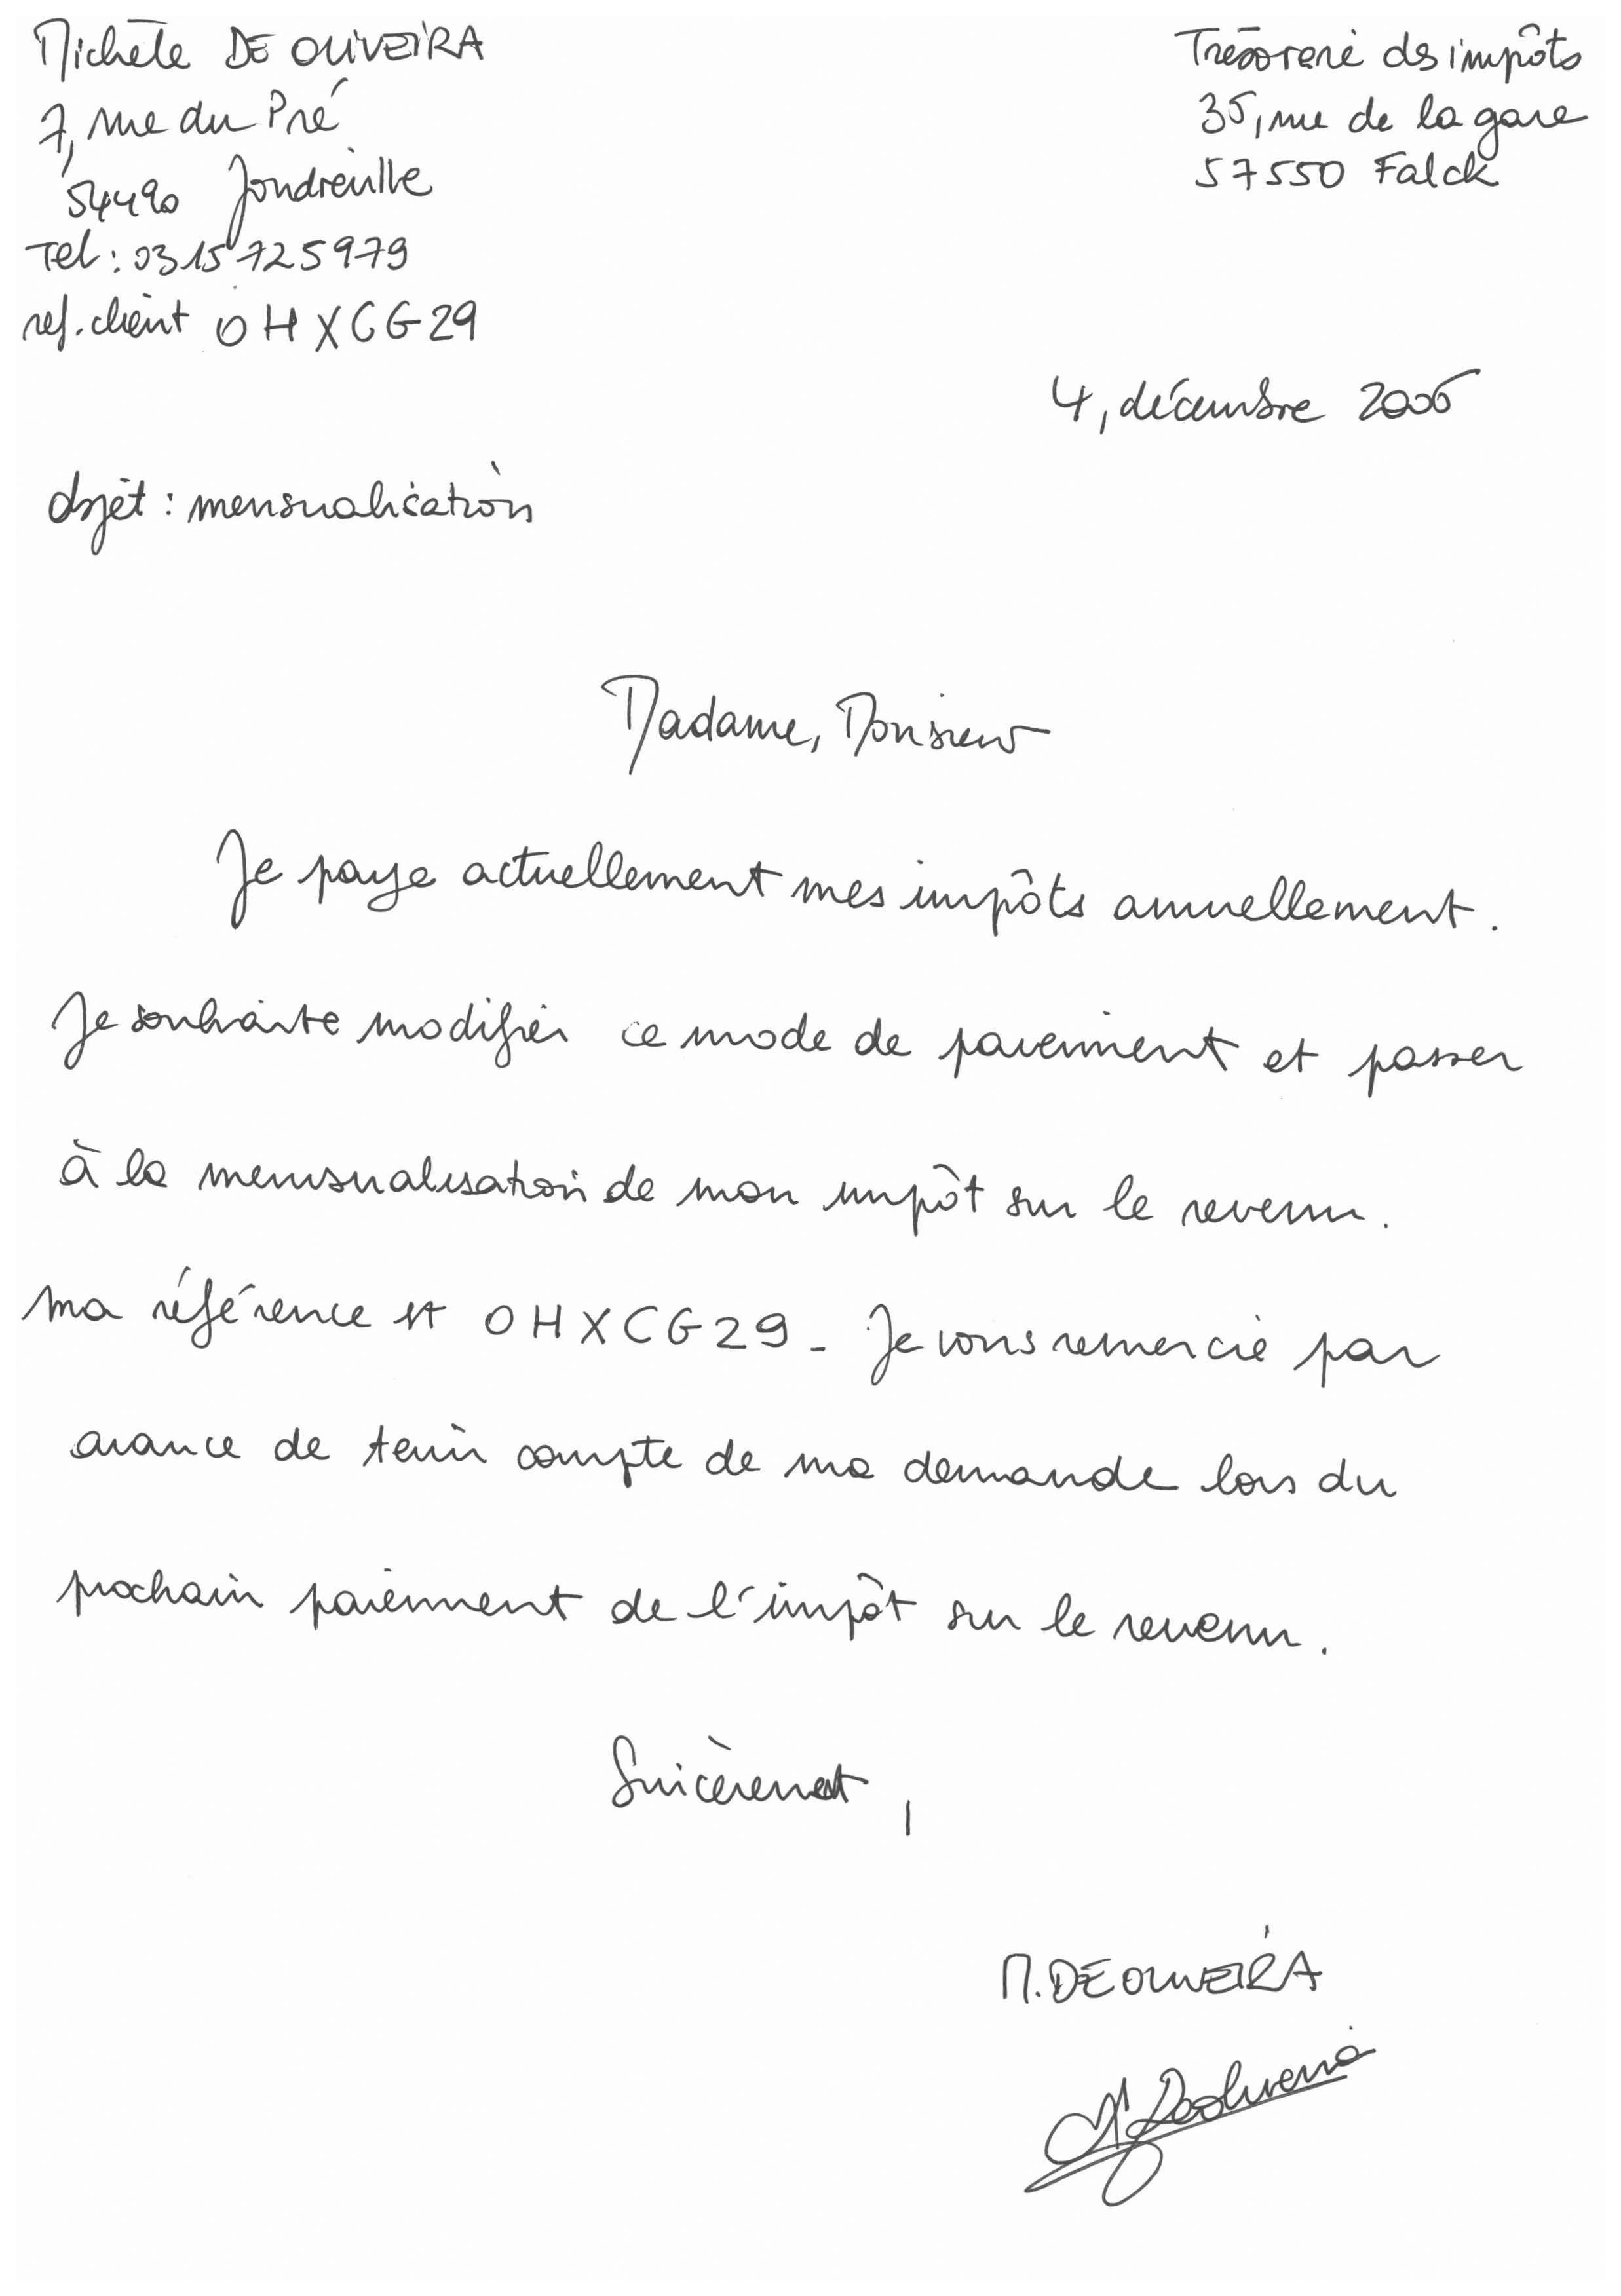 Michèle DE OLIVEIRA
7, rue du Pré
54490 Jondreville
Tel : 0315725979
ref. client OHXCG29
Trésorerie des impôts
35, rue de la gare
57550 Falck
4, décembre 2006
objet : mensualisation
Madame, Monsieur
Je paye actuellement mes impôts annuellement.
Je souhaite modifier ce mode de paiement et passer
à la mensualisation de mon impôt sur le revenu.
Ma référence est OHXCG29. Je vous remercie par
avance de tenir compte de ma demande lors du
prochain paiement de l'impôt sur le revenu.
Sincèrement,
M. DE OLIVEIRA
M Deoliveira